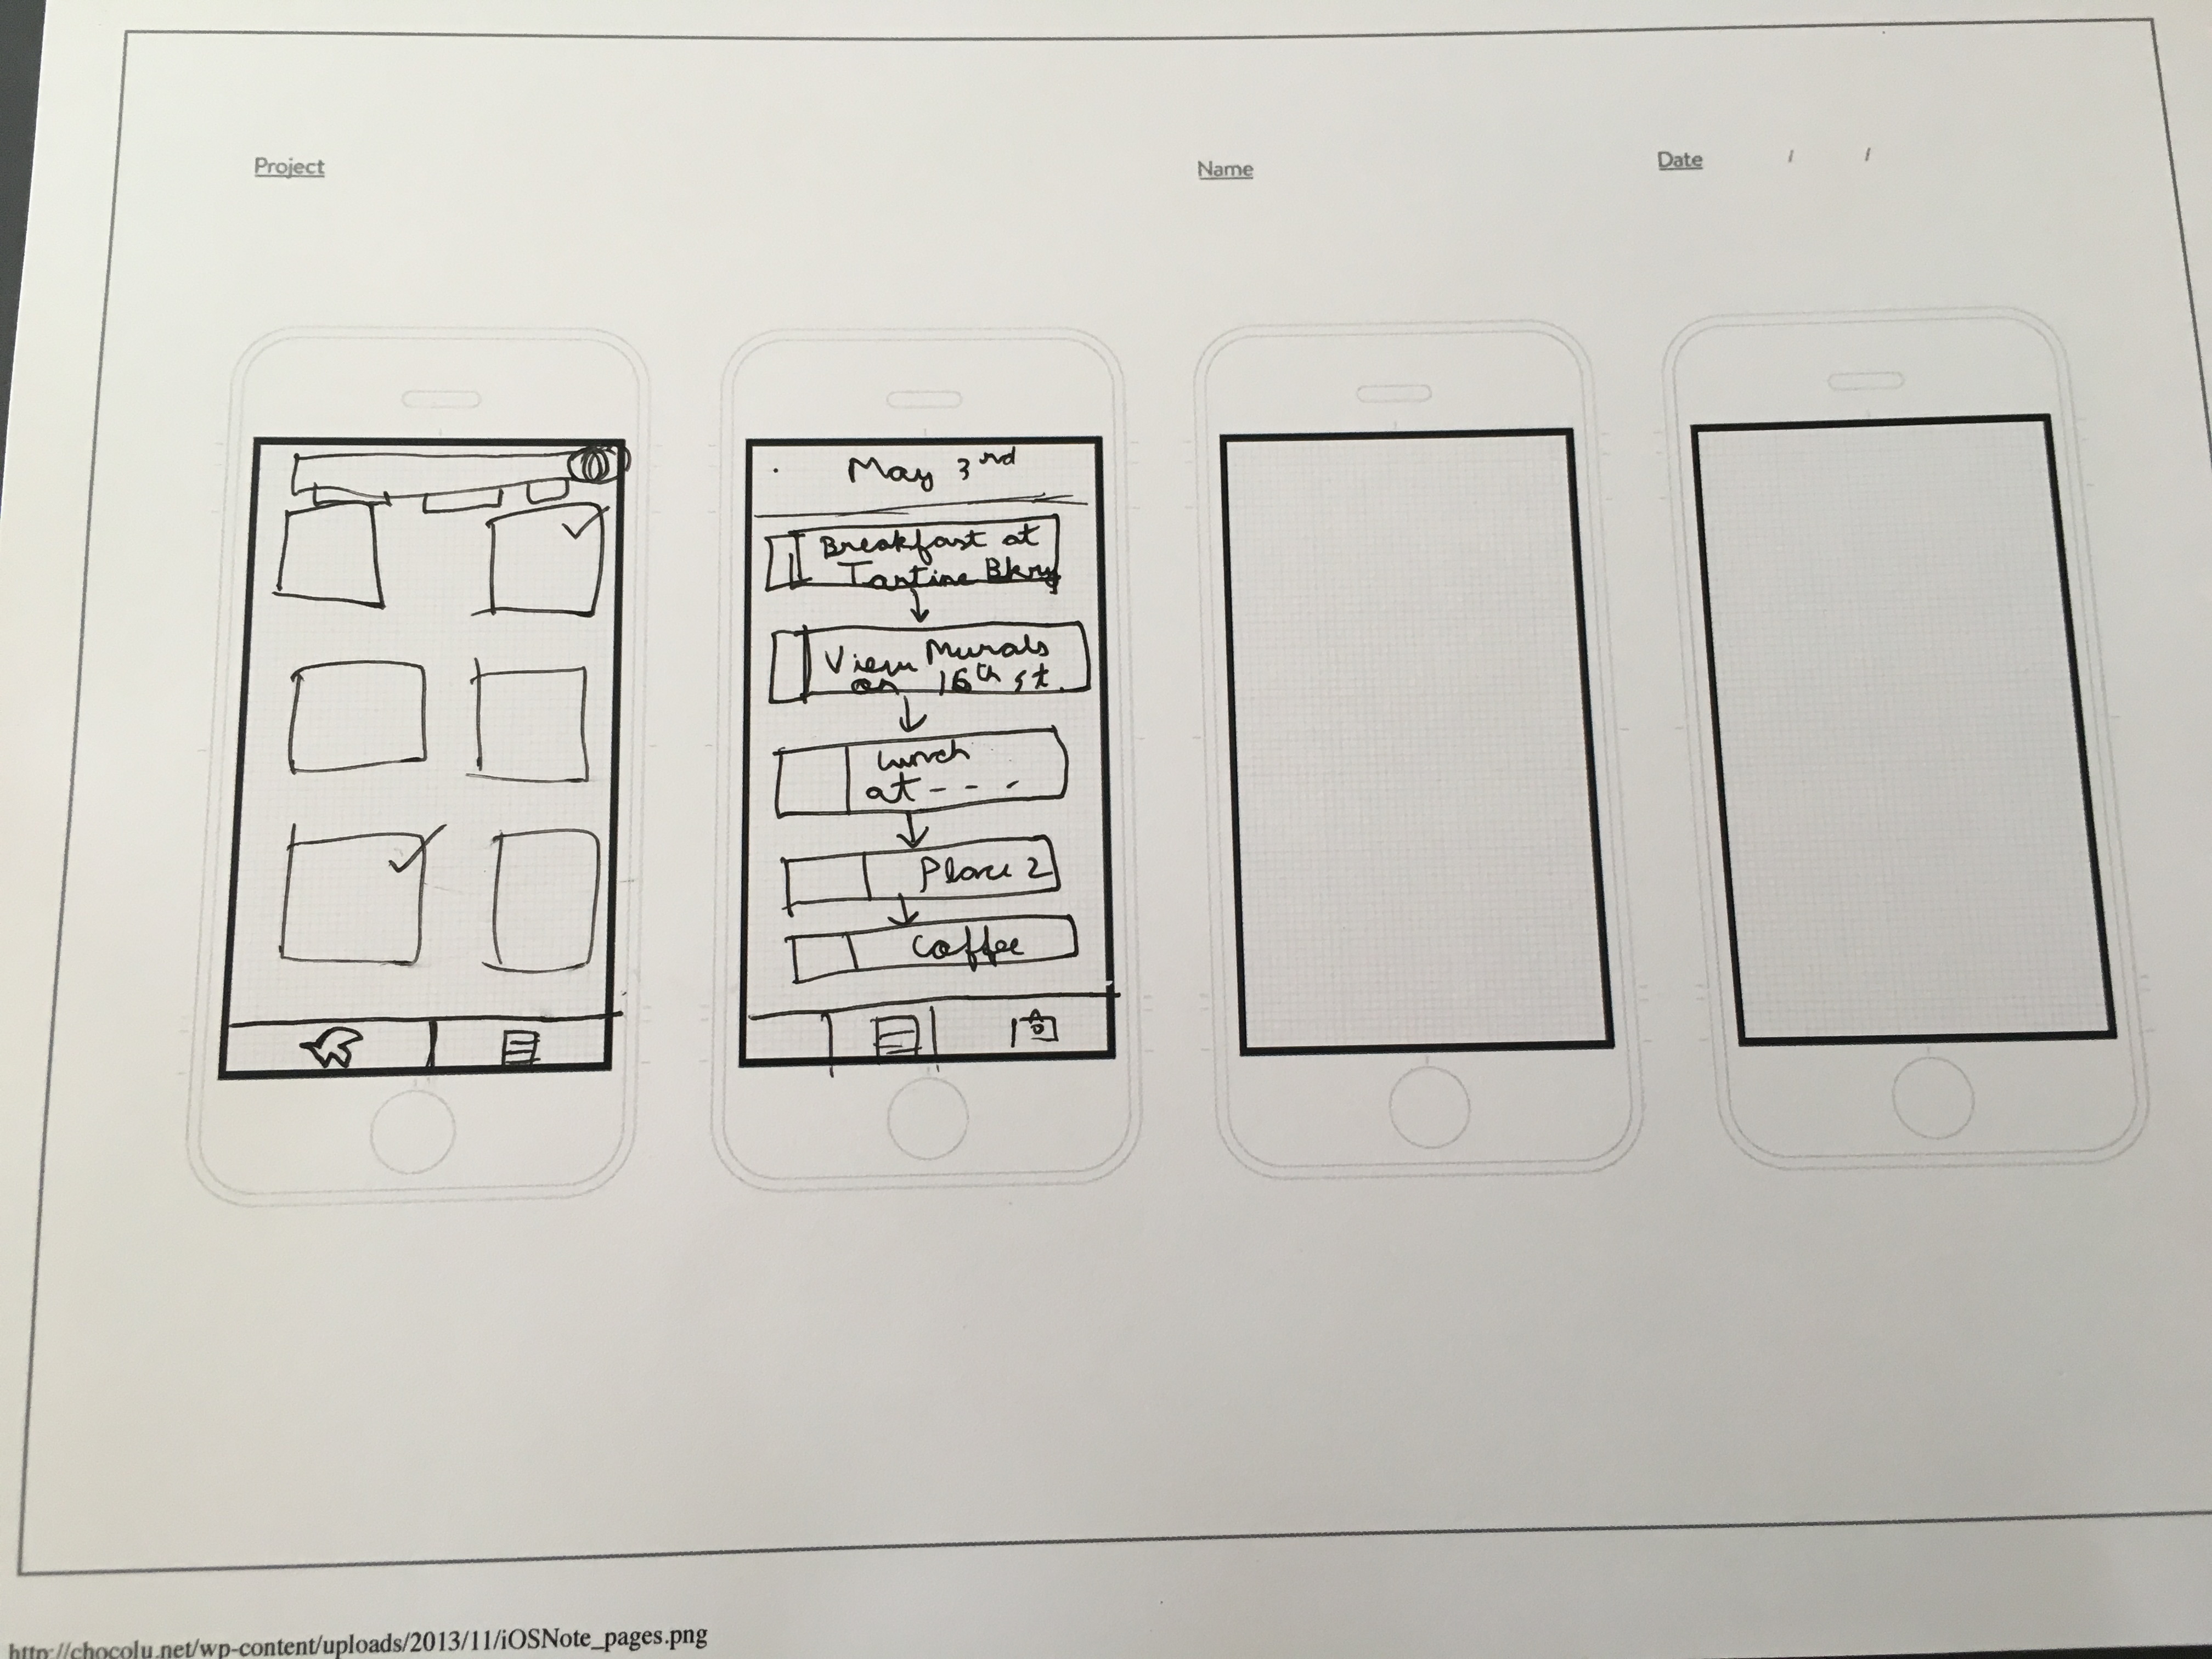 Project
Name
Date / /
May 3rd
Breakfast at
Tartine Bkry
View Murals
on 16th st.
Lunch
at - - -
Place 2
Coffee
http://chocolu.net/wp-content/uploads/2013/11/iOSNote_pages.png